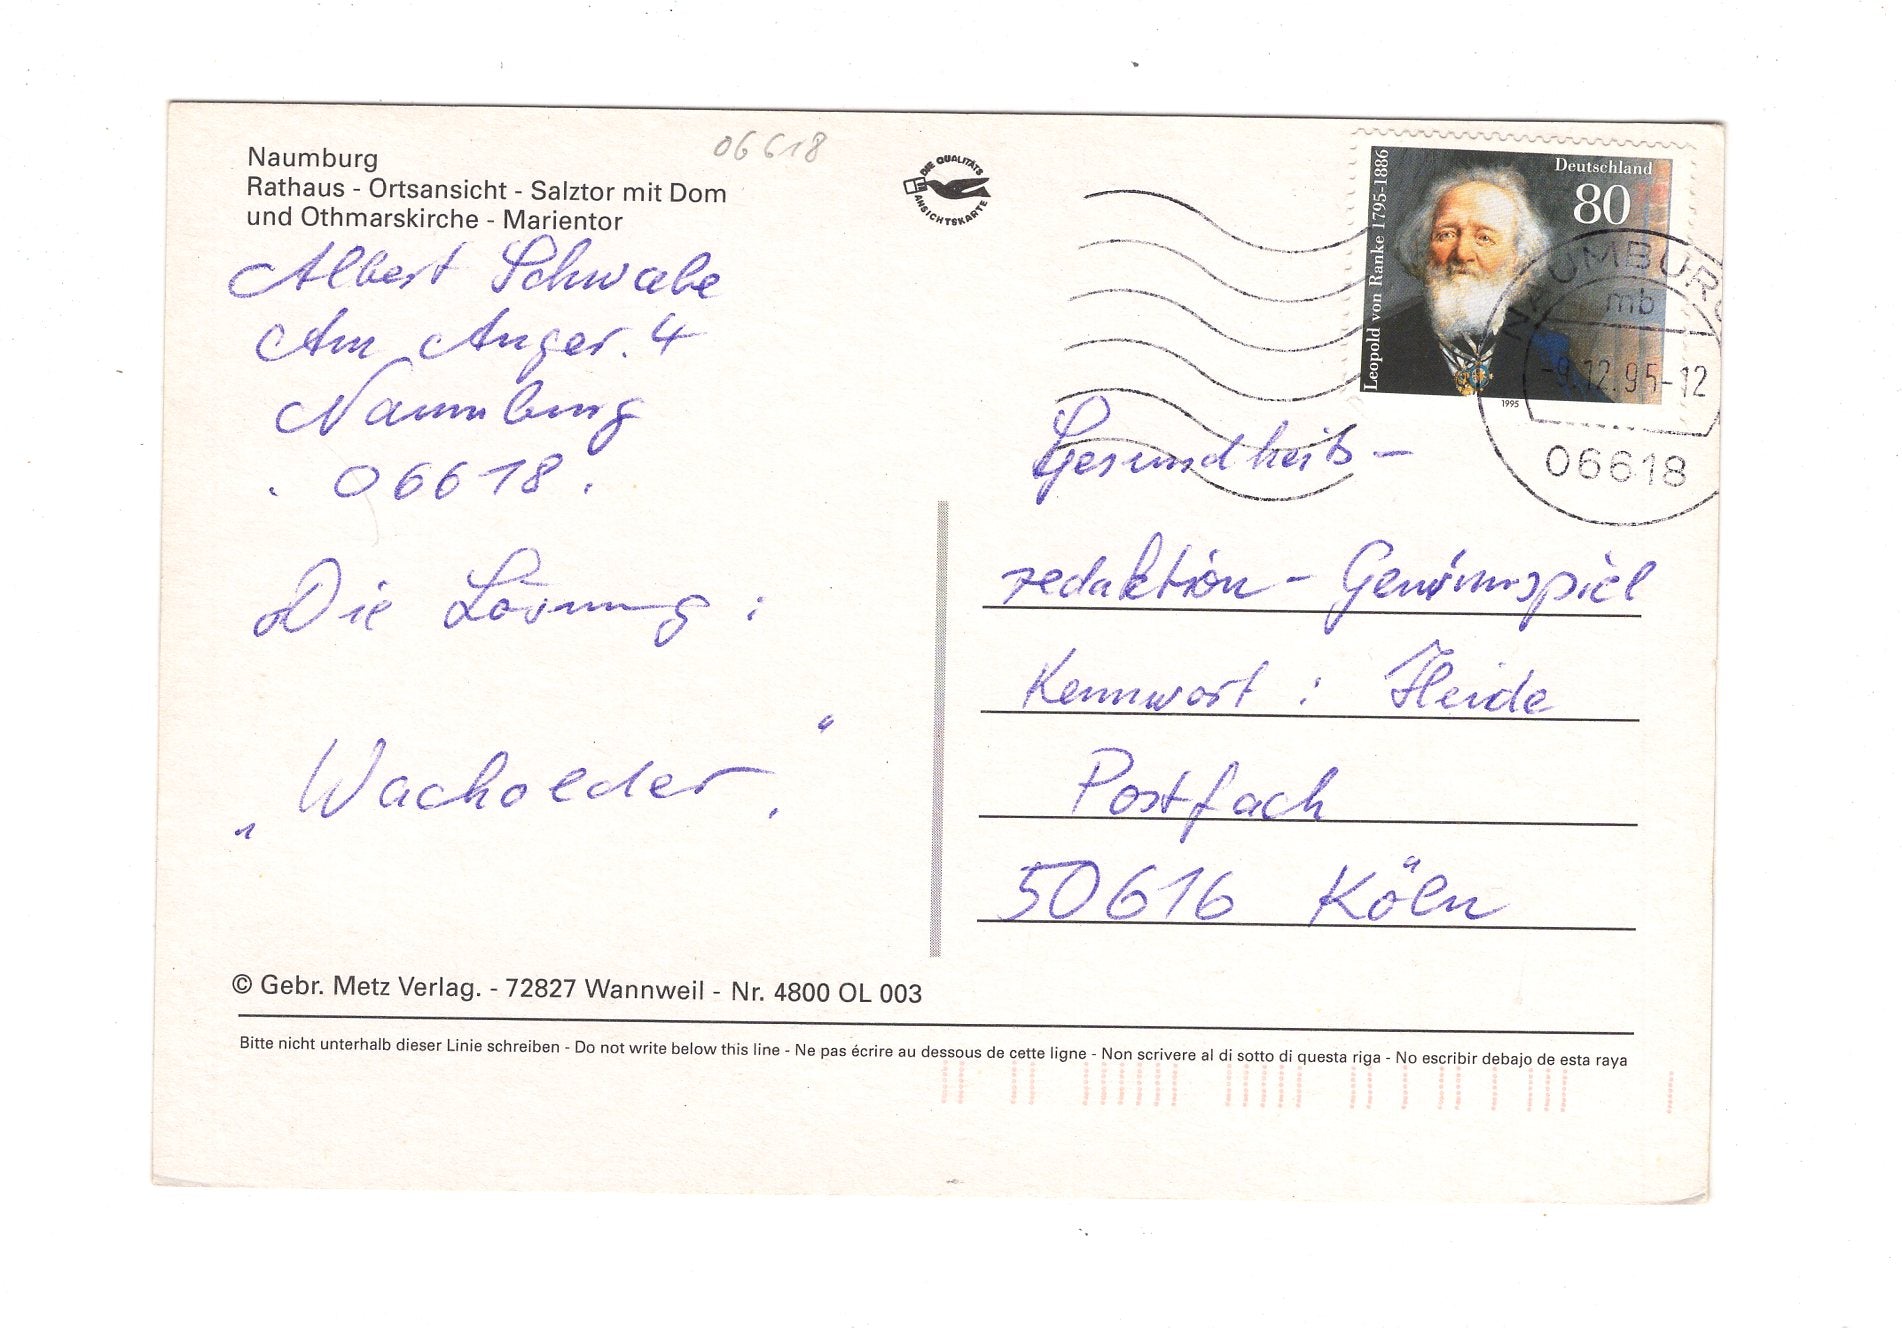 Naumburg
Rathaus - Ortsansicht - Salztor mit Dom
und Othmarskirche - Marientor
06618
DIE QUALITÄTS
ANSICHTSKARTE
Albert Schwabe
Am Anger. 4
Naumburg
. 06618 .
Die Lösung :
„Wacholder.“
Leopold von Ranke 1795-1886
Deutschland
80
1995
NAUMBURG
mb
-9.12.95-12
06618
Gesundheits-
redaktion - Gewinnspiel
Kennwort : Heide
Postfach
50616 Köln
© Gebr. Metz Verlag. - 72827 Wannweil - Nr. 4800 OL 003
Bitte nicht unterhalb dieser Linie schreiben - Do not write below this line - Ne pas écrire au dessous de cette ligne - Non scrivere al di sotto di questa riga - No escribir debajo de esta raya